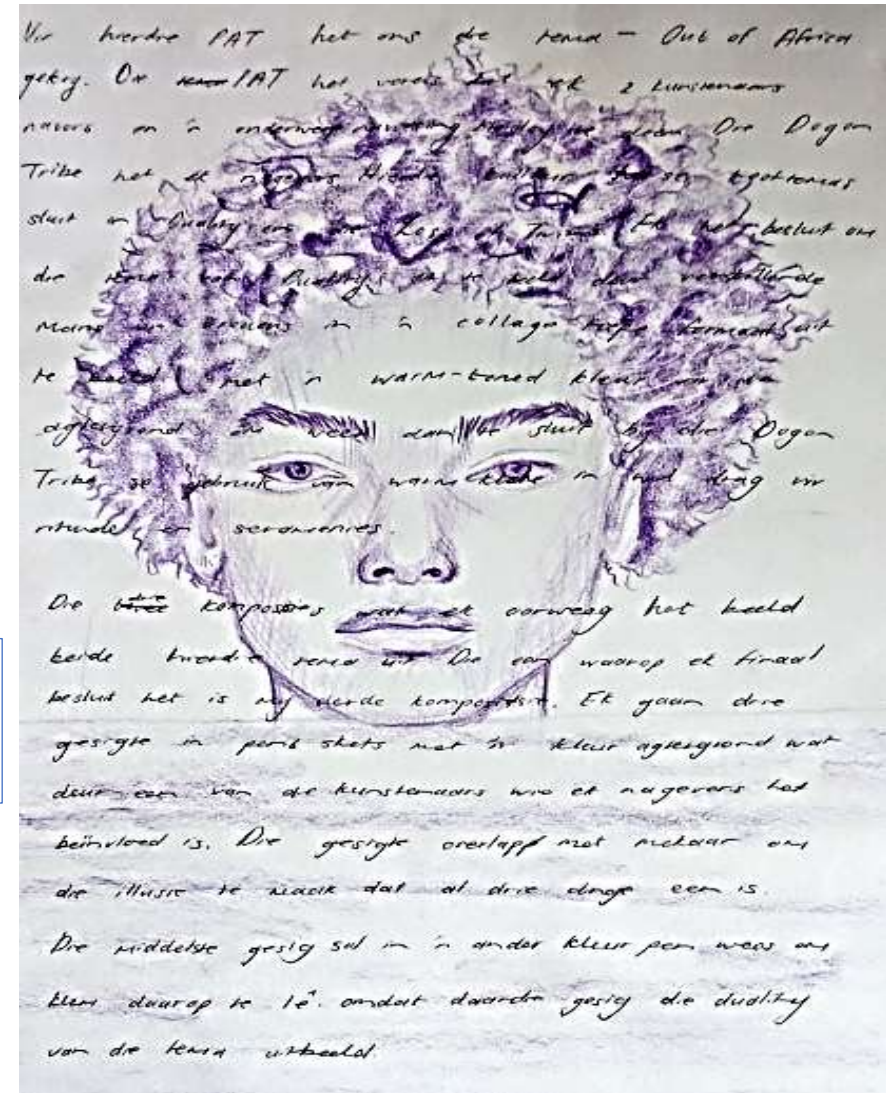 Vir hierdie PAT het ons die tema - Out of Africa
gekry. Die PAT het vereis dat ek 2 kunstenaars
navors en 'n onderwerp Die Dogon
Tribe het ek nagevors. Hierdie
sluit in Duality en die Loss of Twins. Ek het besluit om
die tema van Duality uit te beeld deur verskillende
mans en vrouens in 'n collage tipe formaat uit
te beeld met 'n warm-toned kleur
agtergrond sluit by die Dogon
Tribe se gebruik van warm klere in hul drag vir
rituele en seremonies.
Die drie komposisies wat ek oorweeg het beeld
beide hierdie tema uit. Die een waarop ek finaal
besluit het is my derde komposisie. Ek gaan drie
gesigte in penne skets met 'n kleur agtergrond wat
deur een van die kunstenaars wie ek nagevors het
beïnvloed is. Die gesigte overlapp met mekaar om
die illusie te maak dat al drie dinge een is.
Die middelste gesig sal in 'n ander kleur pen wees om
klem daarop te lê. omdat daardie gesig die duality
van die tema uitbeeld.